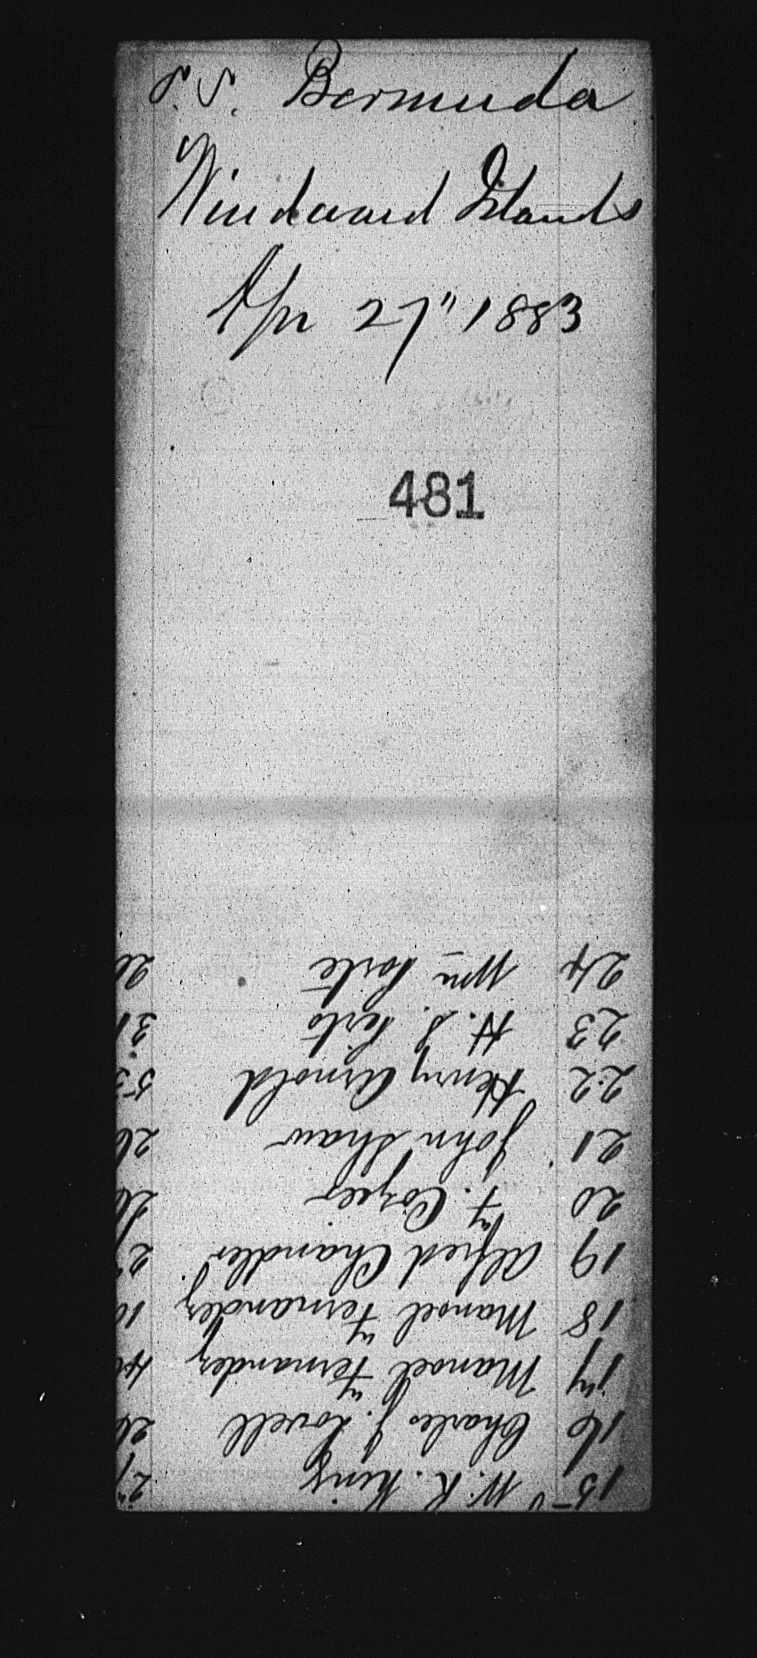 S.S. Bermuda
Windward Islands
Apr 27" 1883
481
15 W. K. King 27
16 Charles J. Lovell
17 Manoel Fernandez
18 Manoel Fernandez
19 Alfred Chandler
20
21 John Shaw
22 Henry Arnold
23 H. S.
24 Wm